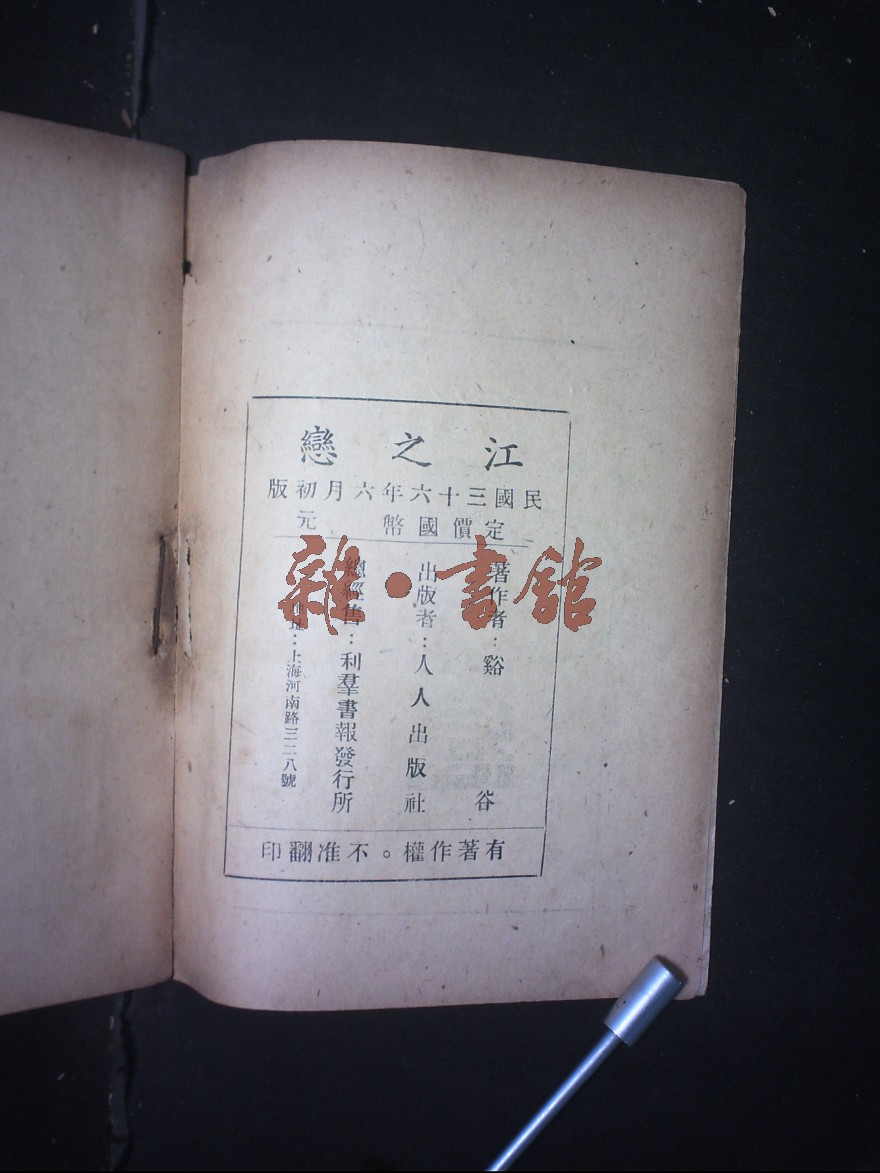 江之戀
民國三十六年六月初版
定價國幣　元
著作者：谿谷
出版者：人人出版社
總經售：利羣書報發行所
地址：上海河南路三二八號
有著作權。不准翻印
雜·書館